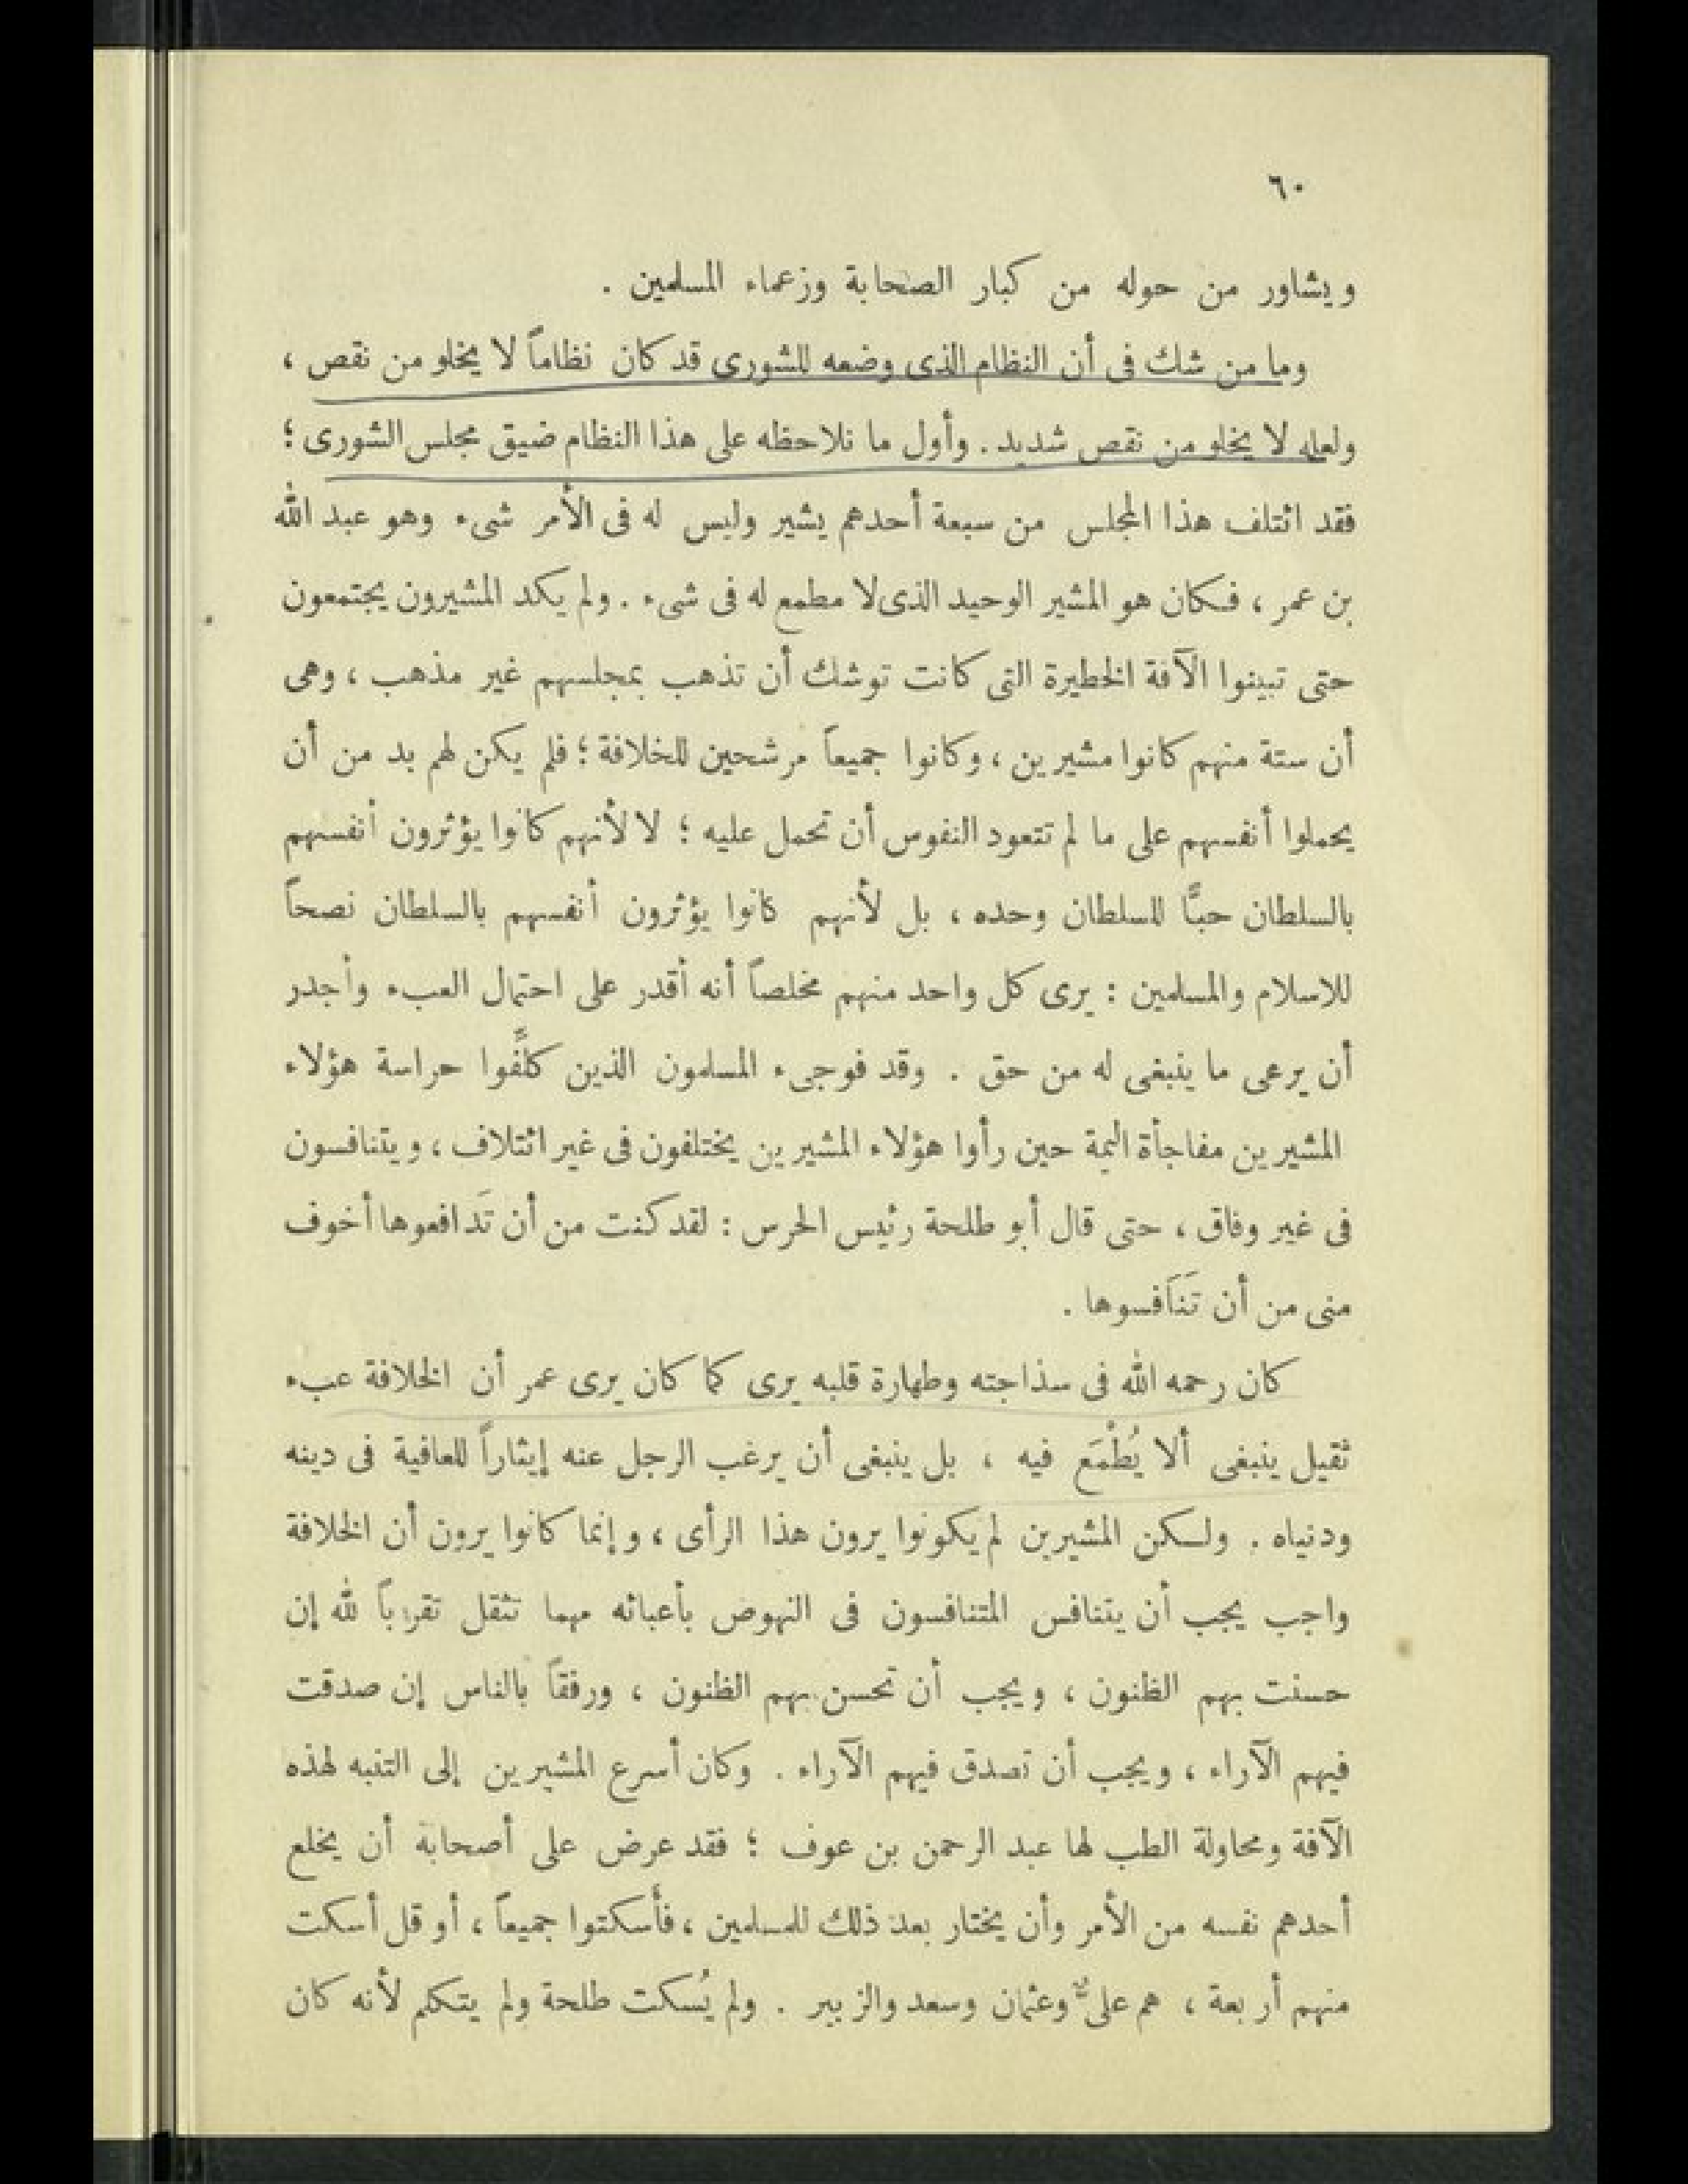 ٦٠
ويشاور من حوله من كبار الصحابة وزعماء المسلمين .
وما من شك فى أن النظام الذى وضعه للشورى قد كان نظاماً لا يخلو من نقص ،
ولعله لا يخلو من نقص شديد . وأول ما نلاحظه على هذا النظام ضيق مجلس الشورى ؛
فقد ائتلف هذا المجلس من سبعة أحدهم يشير وليس له فى الأمر شىء وهو عبد الله
بن عمر ، فكان هو المشير الوحيد الذى لا مطمع له فى شىء . ولم يكد المشيرون يجتمعون
حتى تبينوا الآفة الخطيرة التى كانت توشك أن تذهب بمجلسهم غير مذهب ، وهى
أن ستة منهم كانوا مشيرين ، وكانوا جميعاً مرشحين للخلافة ؛ فلم يكن لهم بد من أن
يحملوا أنفسهم على ما لم تتعود النفوس أن تحمل عليه ؛ لا لأنهم كانوا يؤثرون أنفسهم
بالسلطان حبًّا للسلطان وحده ، بل لأنهم كانوا يؤثرون أنفسهم بالسلطان نصحاً
للاسلام والمسلمين : يرى كل واحد منهم مخلصاً أنه أقدر على احتمال العبء وأجدر
أن يرعى ما ينبغى له من حق . وقد فوجىء المسلمون الذين كلِّفوا حراسة هؤلاء
المشيرين مفاجأة اليمة حين رأوا هؤلاء المشيرين يختلفون فى غير ائتلاف ، ويتنافسون
فى غير وفاق ، حتى قال أبو طلحة رئيس الحرس : لقد كنت من أن تَدافعوها أخوف
منى من أن تَنَافسوها .
كان رحمه الله فى سذاجته وطهارة قلبه يرى كما كان يرى عمر أن الخلافة عبء
ثقيل ينبغى ألا يُطْمَع فيه ، بل ينبغى أن يرغب الرجل عنه إيثاراً للعافية فى دينه
ودنياه . ولكن المشيرين لم يكونوا يرون هذا الرأى ، وإنما كانوا يرون أن الخلافة
واجب يجب أن يتنافس المتنافسون فى النهوض بأعبائه مهما تثقل تقرباً لله إن
حسنت بهم الظنون ، ويجب أن تحسن بهم الظنون ، ورفقاً بالناس إن صدقت
فيهم الآراء ، ويجب أن تصدق فيهم الآراء . وكان أسرع المشيرين إلى التنبه لهذه
الآفة ومحاولة الطب لها عبد الرحمن بن عوف ؛ فقد عرض على أصحابه أن يخلع
أحدهم نفسه من الأمر وأن يختار بعد ذلك للمسلمين ، فأسكتوا جميعاً ، أو قل أسكت
منهم أربعة ، هم علىٌّ وعثمان وسعد والزبير . ولم يُسكت طلحة ولم يتكلم لأنه كان